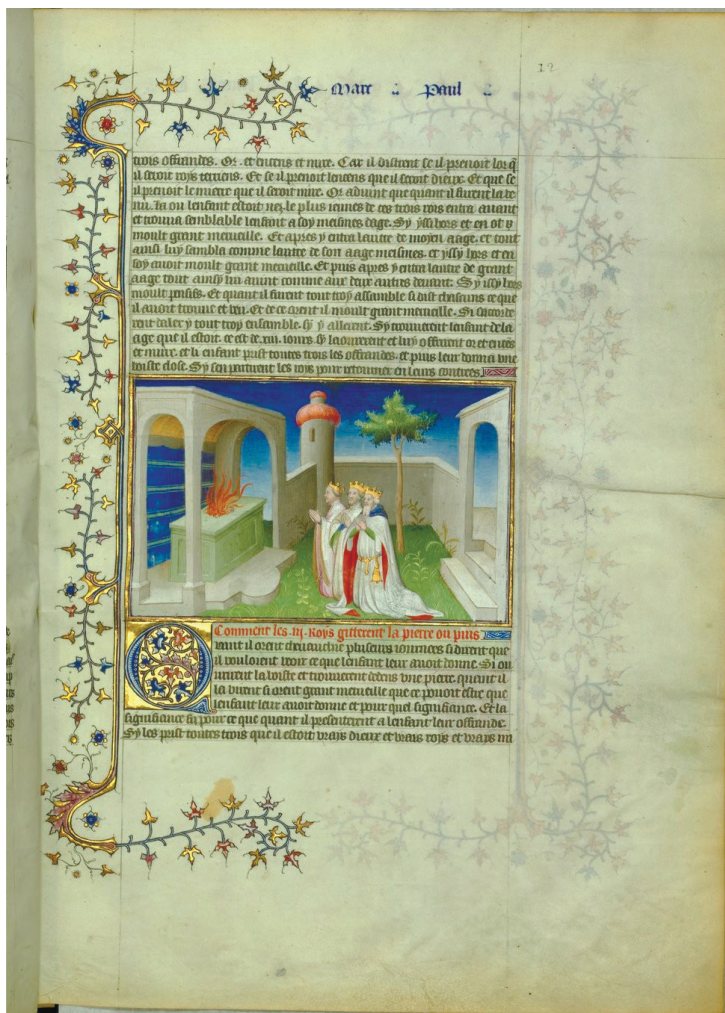 12
Marc Paul
trois offrandes. Or. et encens et mirre. Car il disirent se il prenoit lor q̃
il seroit roys terriens. Et se il prenoit lencens que il seroit dieux. Et que se
il prenoit le mierre que il seroit mire. Or aduint que quant il furent la ve
nu. La ou lenfant estoit nez le plus iennes de ces trois rois entra auant
et trouua semblable lenfant a soy meismes dage. Sy yssi hors et en ot
moult grant merueille. Et apres y entra lautre de moyen aage. et tout
ainsi luy sambla comme lautre de son aage meismes. et yssy hors et en
soy auoit moult grant merueille. Et puis apres y entra lautre de grant
aage tout ainsy lui auint comme aux deux autres deuant. Sy issy hors
moult pensifs. Et quant il furent tout troy assamble si dist chascuns ce que
il auoit trouue et veu. Et de ce orent il moult grant merueille. Si sacorde
rent daler y tout troy ensamble. sy y allerent. Sy trouuerent lenfant de la
age que il estoit. ce est de .xiii. iours. sy laourerent et luy offrirent or et encēs
et mirre. et li enfant prist toutes trois les offrandes. et puis leur donna vne
boiste close. Sy sen partirent les roys pour retourner en leurs contrees.
Comment les .iij. Roys gitterent la pierre ou puis
Quant il orent cheuauchie plusieurs iournees si dirent que
il vouloient veoir ce que lenfant leur auoit donne. Si ou
urirent la boiste et trouuerent dedens vne pierre. quant il
la virent si orent grant merueille que ce pouoit estre que
lenfant leur auoit donne et pour quel signifiance. Et la
signifiance fu pour ce que quant il presenterent a lenfant leur offrande.
Sy les prist toutes trois que il estoit vrais dieux et vrais roys et vrays mi